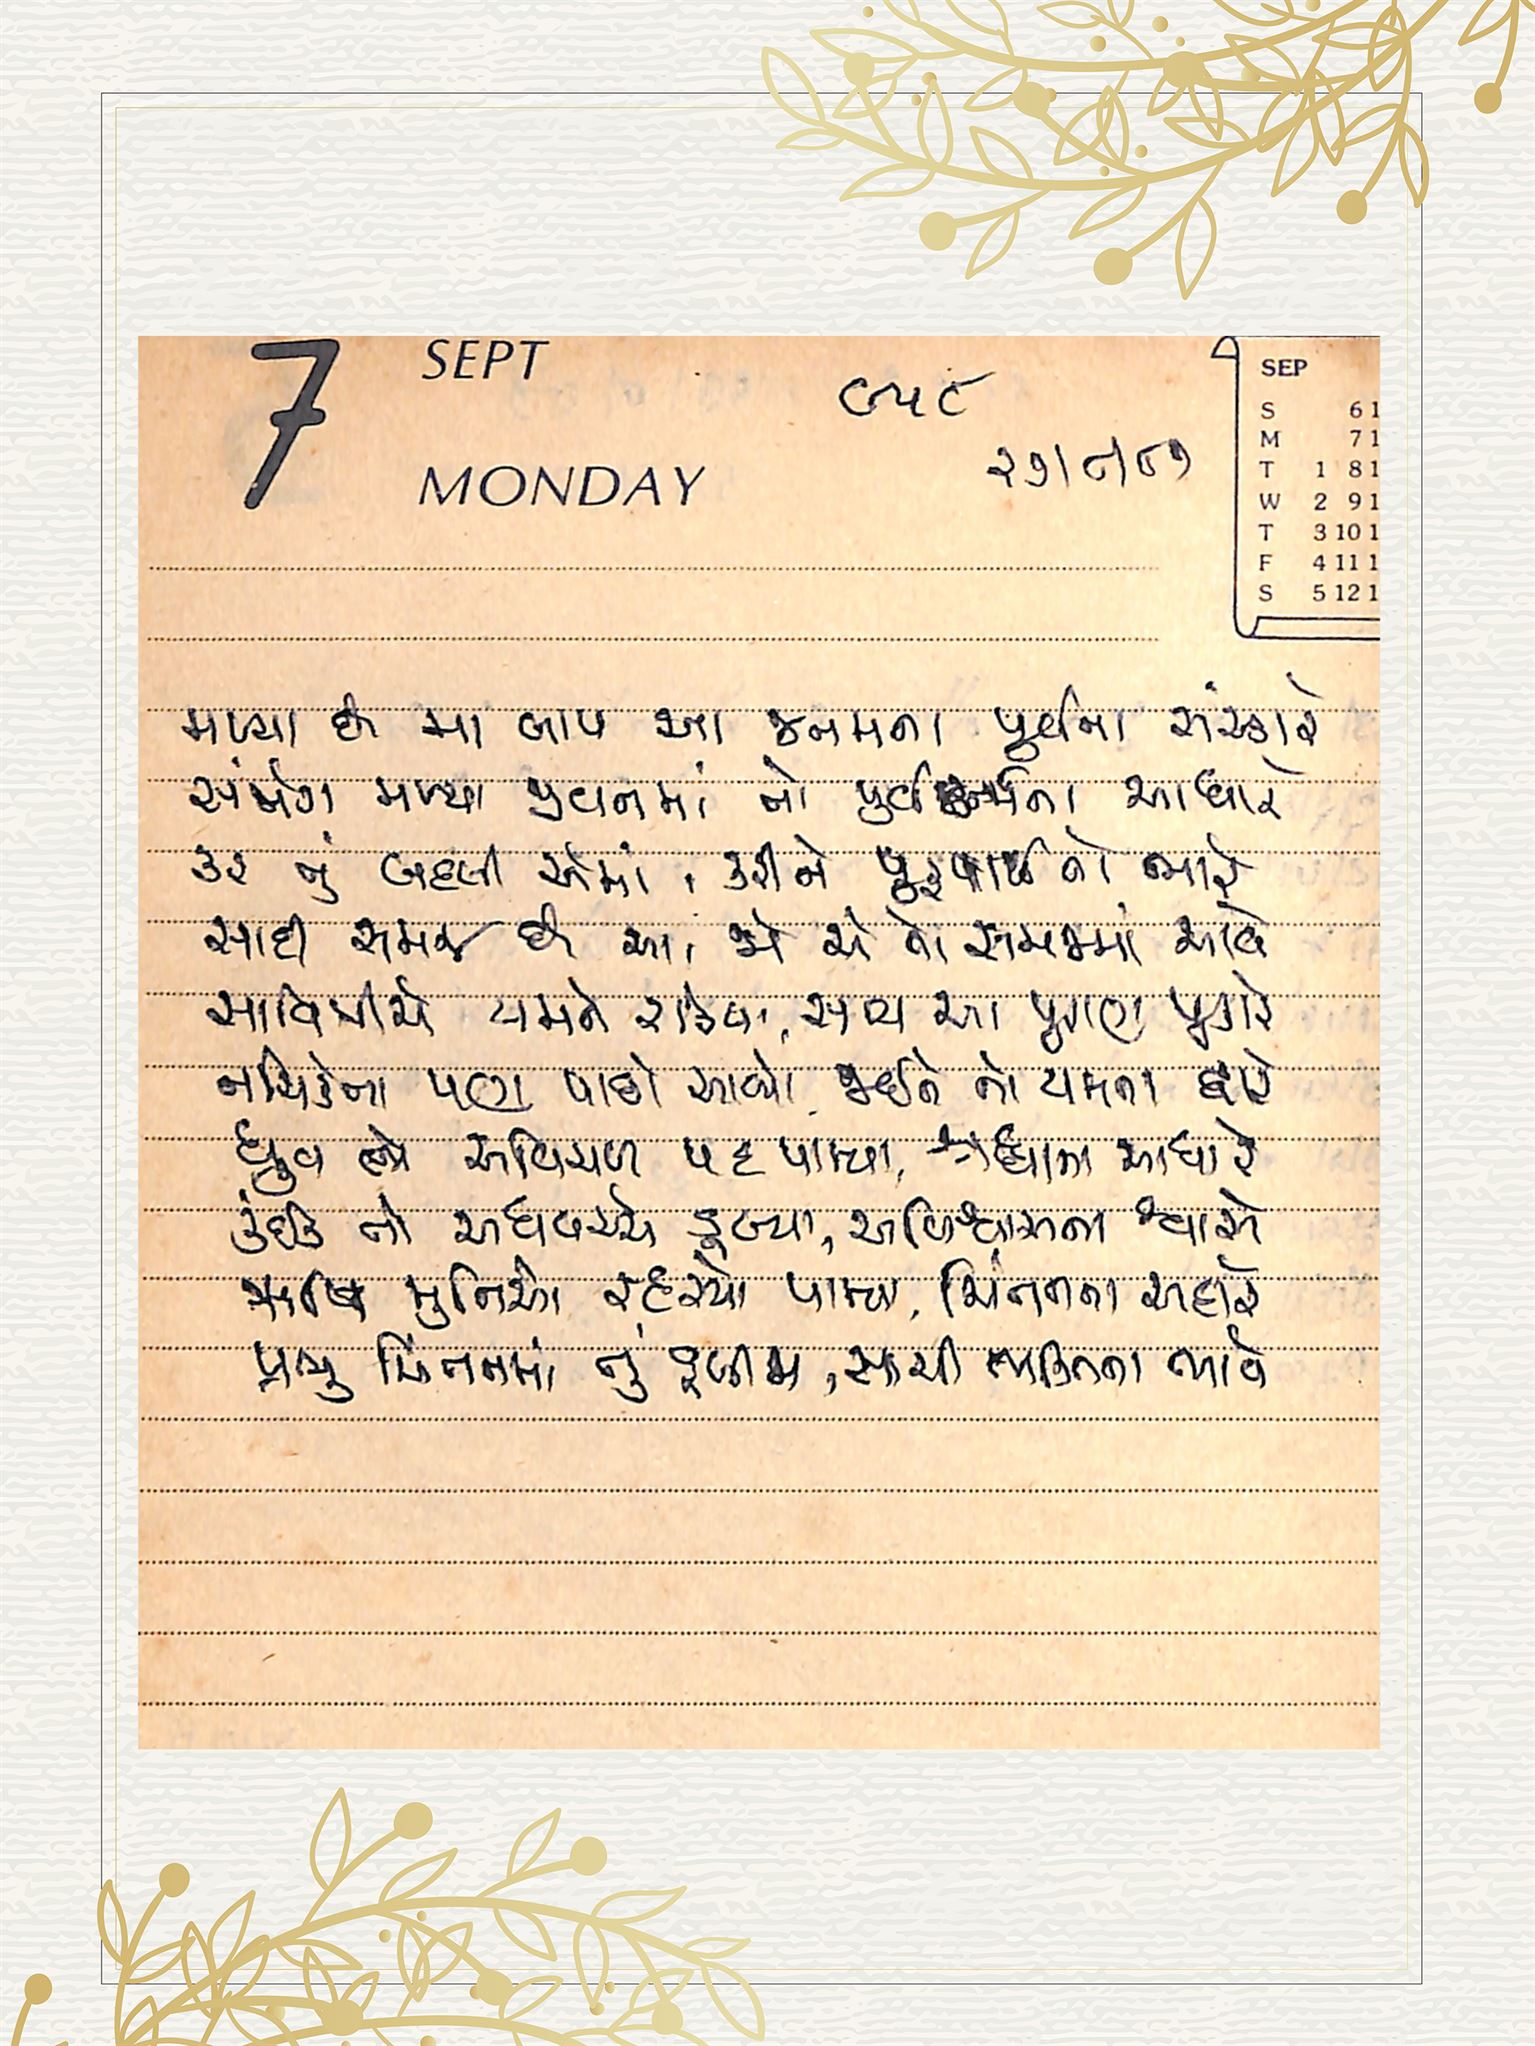 7 SEPT
MONDAY
૯૫૮
૨૭/૮/૮૭
SEP
S 6 1
M 7 1
T 1 8 1
W 2 9 1
T 3 10 1
F 4 11 1
S 5 12 1
મળ્યા છે મા બાપ આ જનમના પુર્વના સંસ્કારે
સંજોગ મળ્યા જીવનમાં તો પુર્વ આધારે
કર તું બદલી એમાં, કરીને પુરૂષાર્થ તો ભારે
સાદી સમજ છે આ, જો એ તો સમજમાં આવે
સાવિત્રીએ યમને રોકેલા, સત્ય આ પુરાણ પુકારે
નચિકેતા પણ પાછો આવ્યો, જઈને તો યમના દ્વારે
ધ્રુવ તો અવિચળ પદ પામ્યા, શ્રધ્ધાના આધારે
કંઈક તો અધવચ્ચે ડૂબ્યા, અવિશ્વાસના શ્વાસે
ઋષિ મુનિઓ રહસ્યો પામ્યા, ચિંતનના સહારે
પ્રભુ ચિંતનમાં તું ડૂબીજા, સાચી ભક્તિના ભાવે